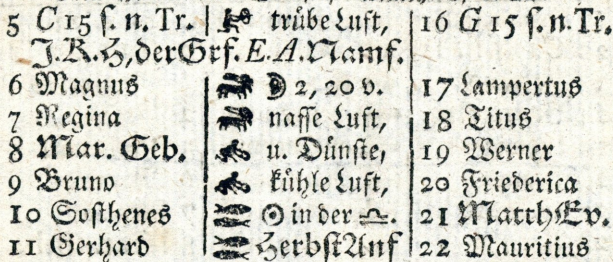 5 C 15 ſ. n. Tr. trübe Luft, 16 G 15 ſ. n. Tr.
J. K. H, der Grſ. E. A. Namſ.
6 Magnus 2, 20 v. 17 Lampertus
7 Regina naſſe Luft, 18 Titus
8 Mar. Geb. u. Dünſte, 19 Werner
9 Bruno kühle Luft, 20 Friederica
10 Soſthenes ☉ in der ♎. 21 MatthEv.
11 Gerhard HerbſtAnf 22 Mauritius